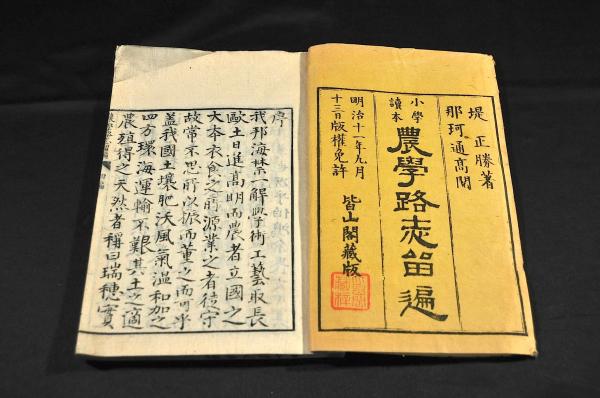 堤正勝著
那珂通高閲
小學
讀本
農學路志留遍
明治十一年九月
十三日版權免許
皆山閣藏版
序
我邦海禁一解學術工藝取長
歐土日進高明而農者立國之
大本衣食之財源業之者徒守
故常不思所以振而董之而可乎
蓋我國土壤肥沃風氣溫和加之
四方環海運輸不艱其土之適
農殖得之天然者稱曰瑞穗實